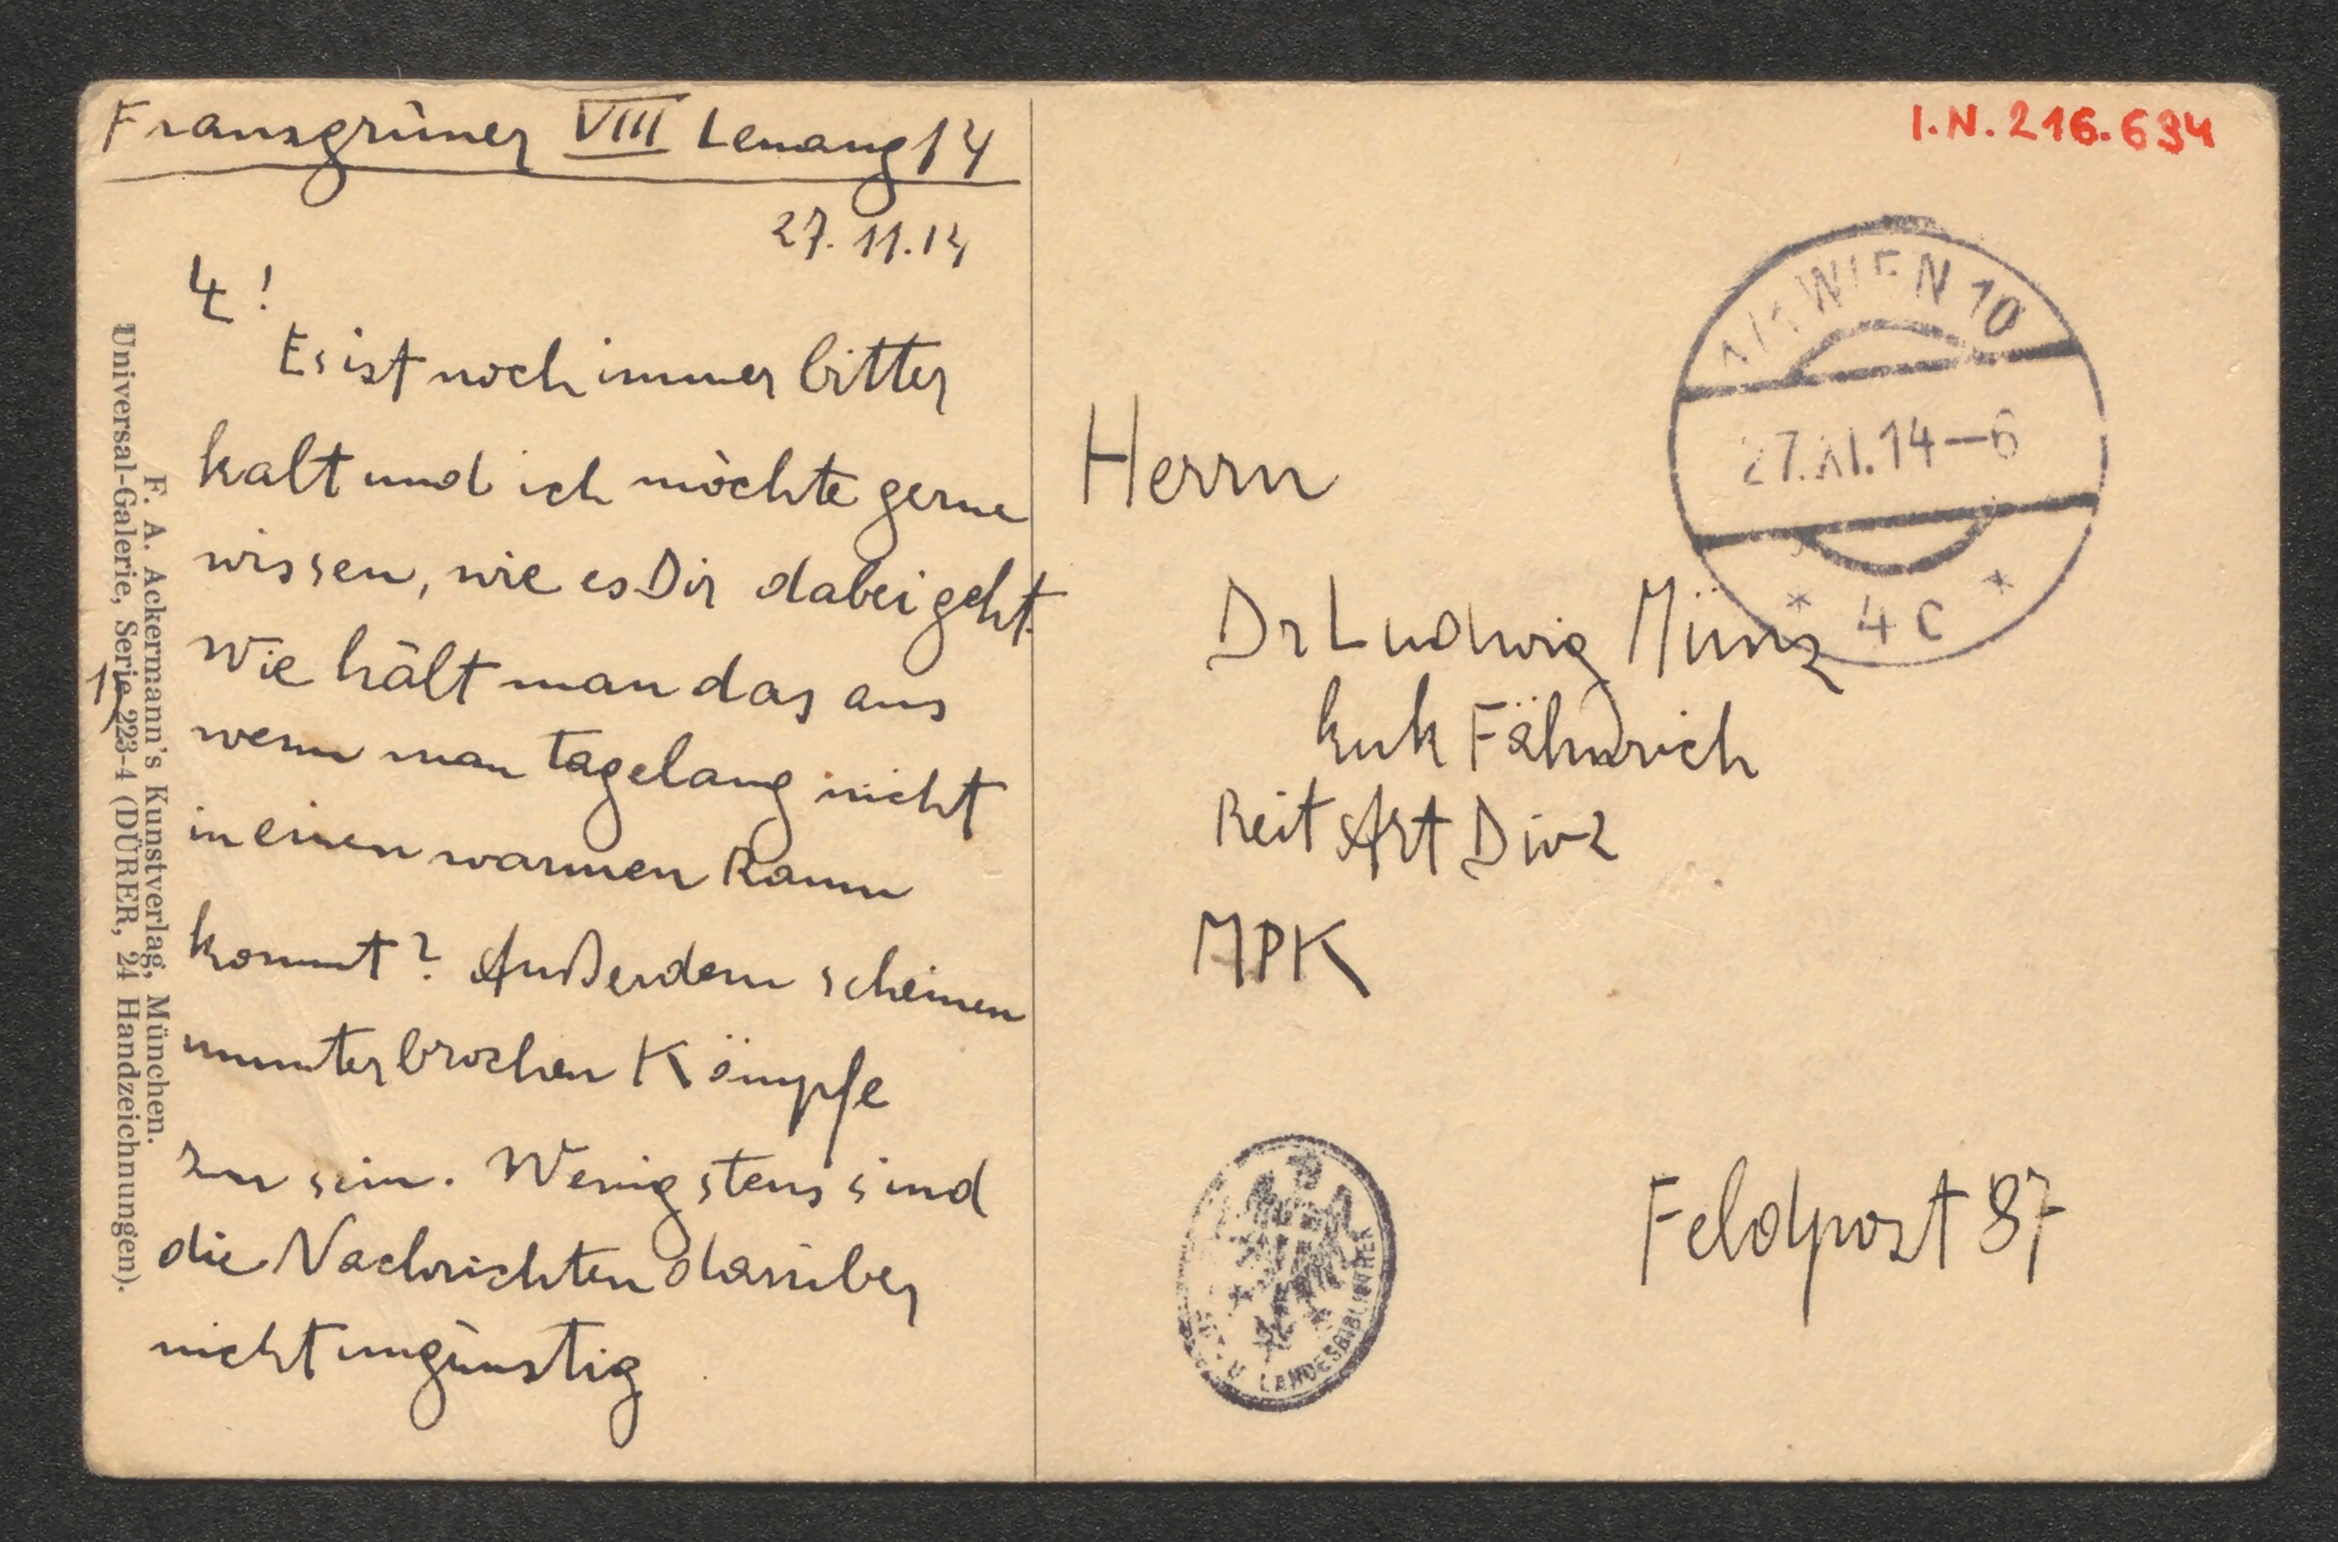 Fransgrüner VIII Lenaug 14
27. 11. 14
L!
Es ist noch immer bitter
kalt und ich möchte gerne
wissen, wie es Dir dabei geht.
Wie hält man das aus
wenn man tagelang nicht
in einen warmen Raum
kommt? Außerdem scheinen
ununterbrochen Kämpfe
zu sein. Wenigstens sind
die Nachrichten darüber
nicht ungünstig
F. A. Ackermann's Kunstverlag, München.
Universal-Galerie, Serie 223-4 (DÜRER, 24 Handzeichnungen).
I.N. 216.694
WIEN 10
27.XI.14–6
* 4c *
Herrn
Dr Ludwig Münz
kuk Fähnrich
Reit Art Div 2
MPK
Feldpost 87
U. LANDESBIBLIOTHEK